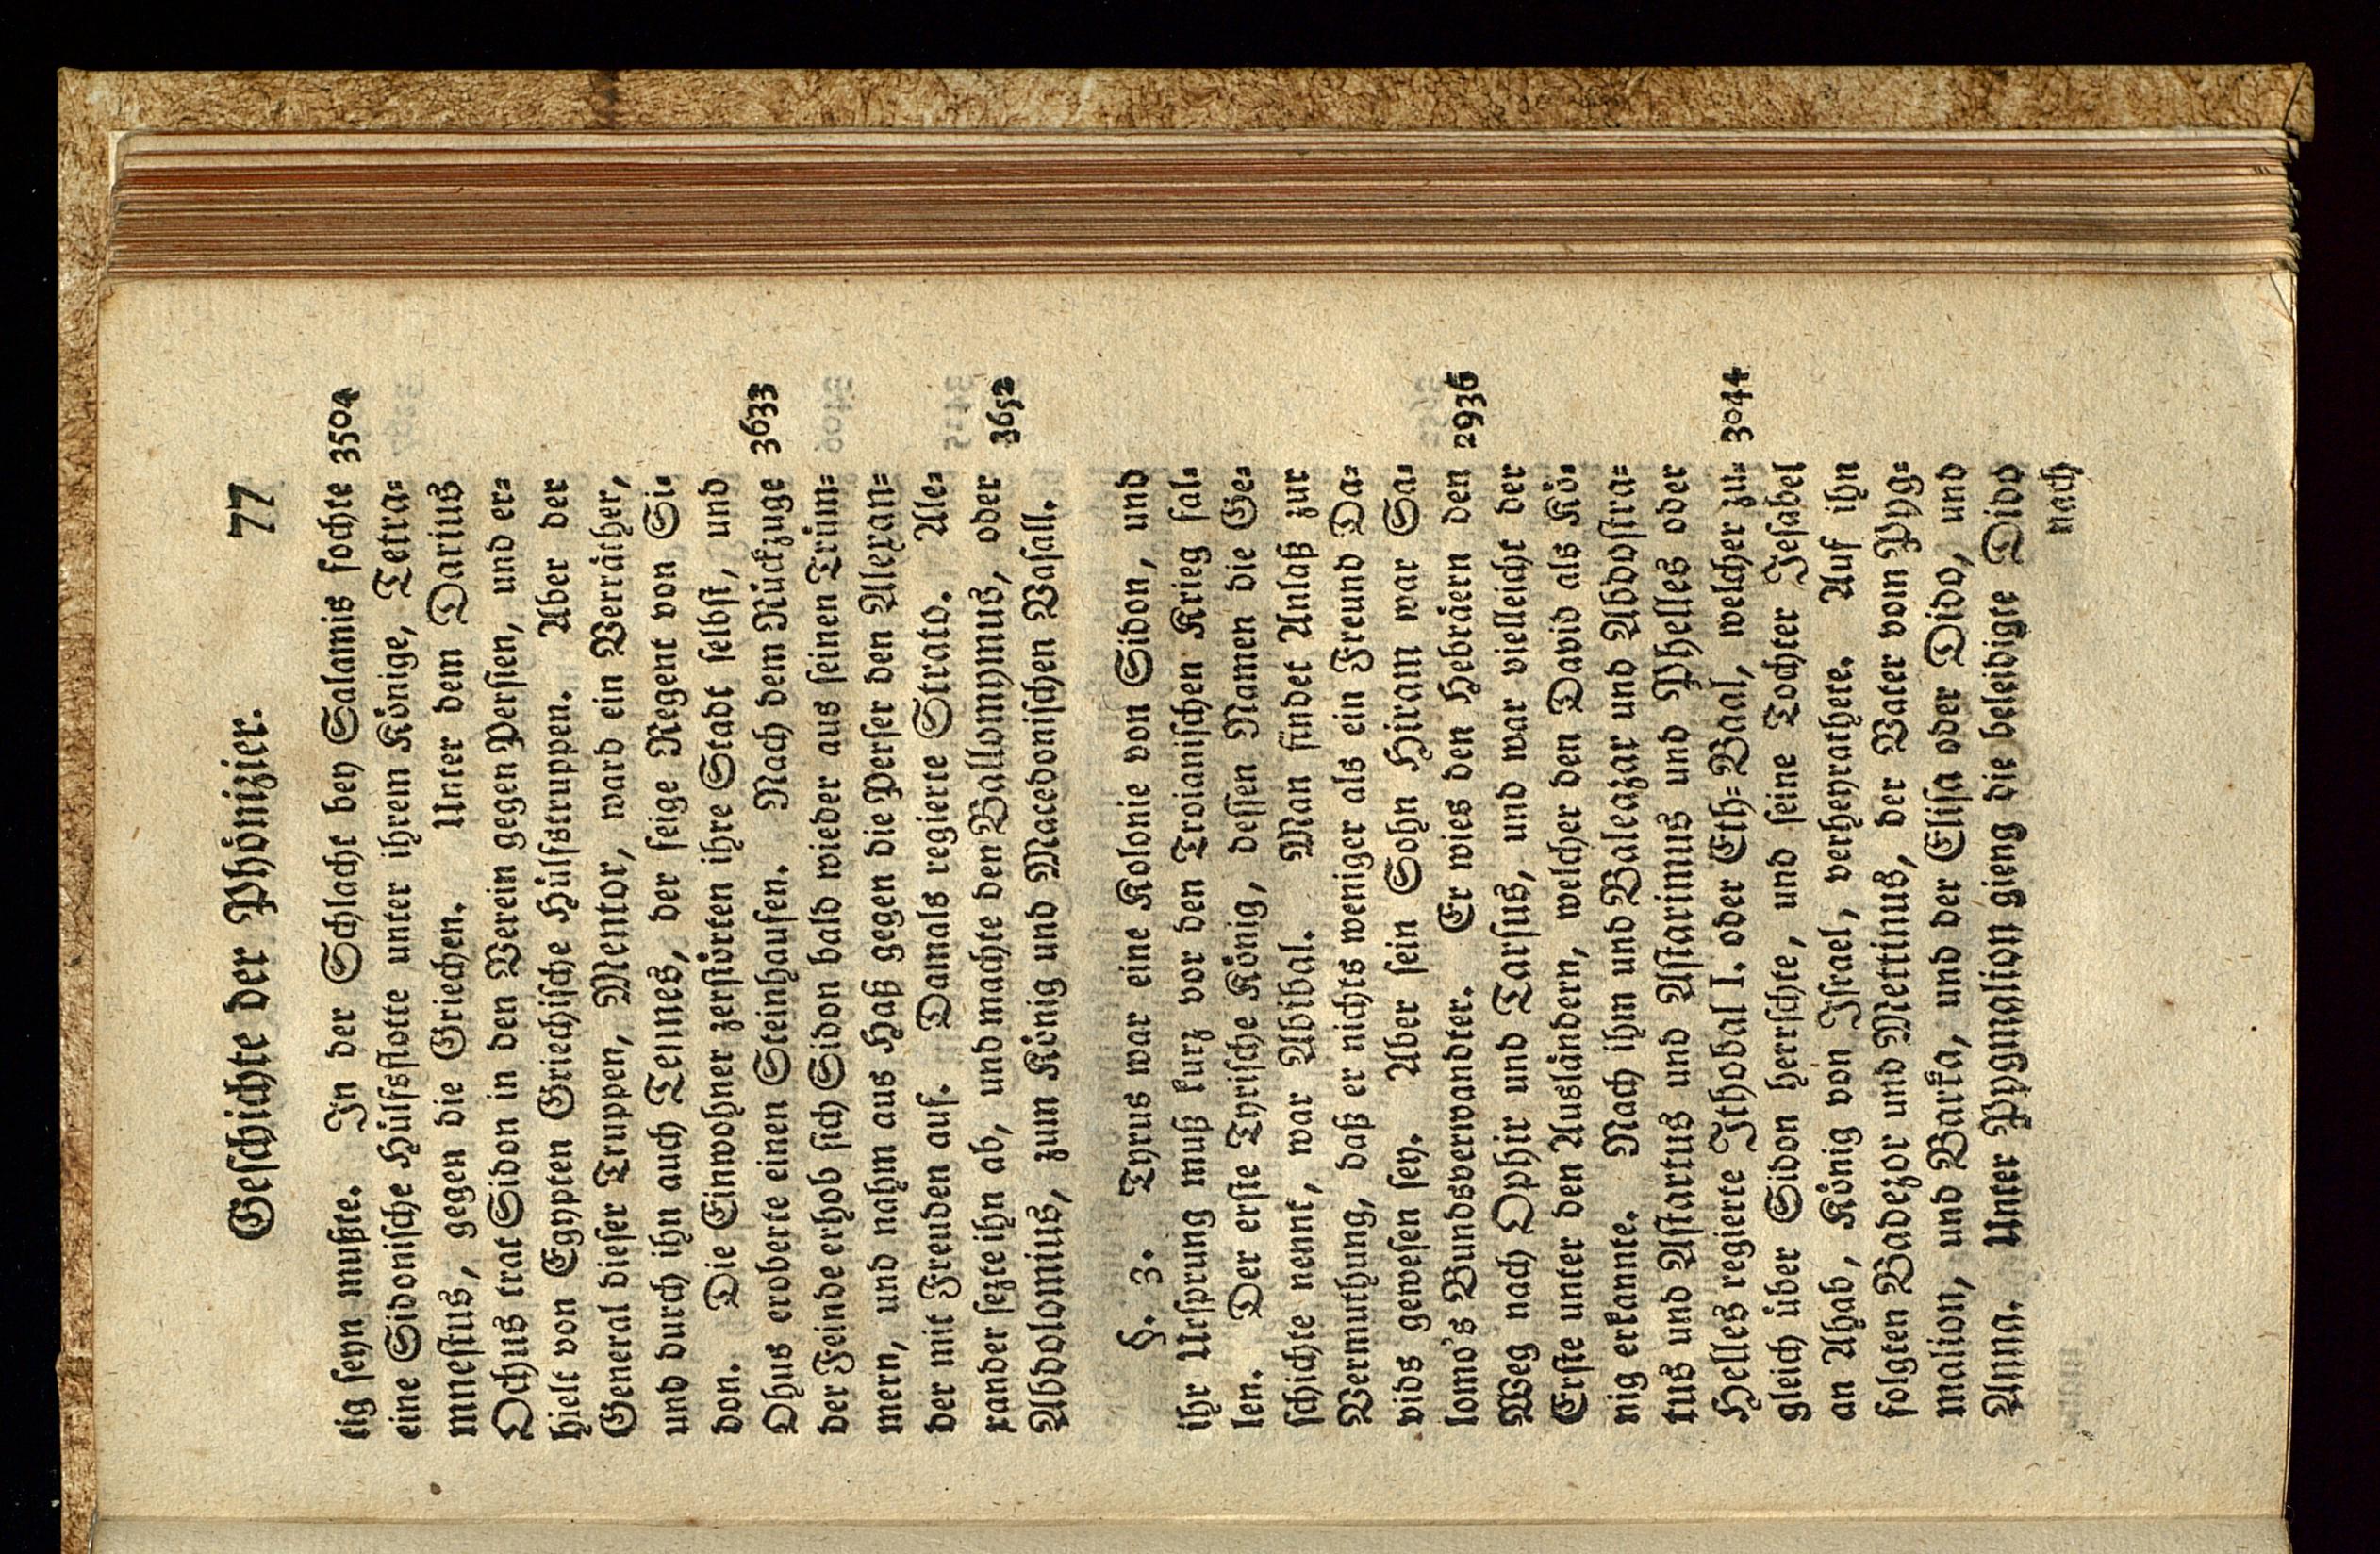 Geschichte der Phönizier. 77
tig seyn mußte. In der Schlacht bey Salamis fochte 3504
eine Sidonische Hülfsflotte unter ihrem Könige, Tetra-
mnestus, gegen die Griechen. Unter dem Darius
Ochus trat Sidon in den Verein gegen Persien, und er-
hielt von Egypten Griechische Hülfstruppen. Aber der
General dieser Truppen, Mentor, ward ein Verräther,
und durch ihn auch Tennes, der feige Regent von Si-
don. Die Einwohner zerstörten ihre Stadt selbst, und
Ohus eroberte einen Steinhaufen. Nach dem Rückzuge 3633
der Feinde erhob sich Sidon bald wieder aus seinen Trüm-
mern, und nahm aus Haß gegen die Perser den Alexan-
der mit Freuden auf. Damals regierte Strato. Ale-
xander sezte ihn ab, und machte den Ballonymus, oder 3652
Abdolomius, zum König und Macedonischen Vasall.
§. 3. Tyrus war eine Kolonie von Sidon, und
ihr Ursprung muß kurz vor den Troianischen Krieg fal-
len. Der erste Tyrische König, dessen Namen die Ge-
schichte nennt, war Abibal. Man findet Anlaß zur
Vermuthung, daß er nichts weniger als ein Freund Da-
vids gewesen sey. Aber sein Sohn Hiram war Sa-
lomo's Bundsverwandter. Er wies den Hebräern den 2936
Weg nach Ophir und Tarsus, und war vielleicht der
Erste unter den Ausländern, welcher den David als Kö-
nig erkannte. Nach ihm und Baleazar und Abdostra-
tus und Astartus und Astarimus und Phelles oder
Helles regierte Ithobal I. oder Eth-Baal, welcher zu- 3044
gleich über Sidon herrschte, und seine Tochter Jesabel
an Ahab, König von Israel, verheyrathete. Auf ihn
folgten Badezor und Mettinus, der Vater vom Pyg-
malion, und Barka, und der Elisa oder Dido, und
Anna. Unter Pygmalion gieng die beleidigte Dido
nach